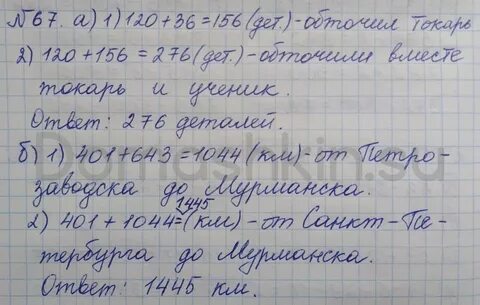 №67. а) 1) 120+36=156 (дет.)-обточил токарь
2) 120+156=276 (дет.)-обточили вместе
токарь и ученик.
Ответ: 276 деталей.
б) 1) 401+643=1044 (км)-от Петро-
заводска до Мурманска.
2) 401+1044=1445 (км)-от Санкт-Пе-
тербурга до Мурманска.
Ответ: 1445 км.
Domashkin.su